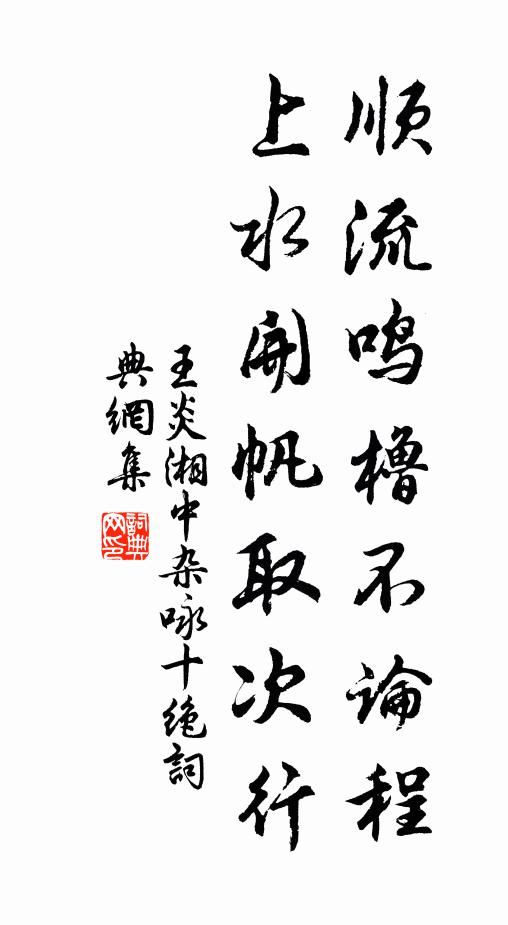 顺流鸣橹不论程
上水開帆取次行
王炎湘中杂咏十绝詞
典網集
詞典
网印